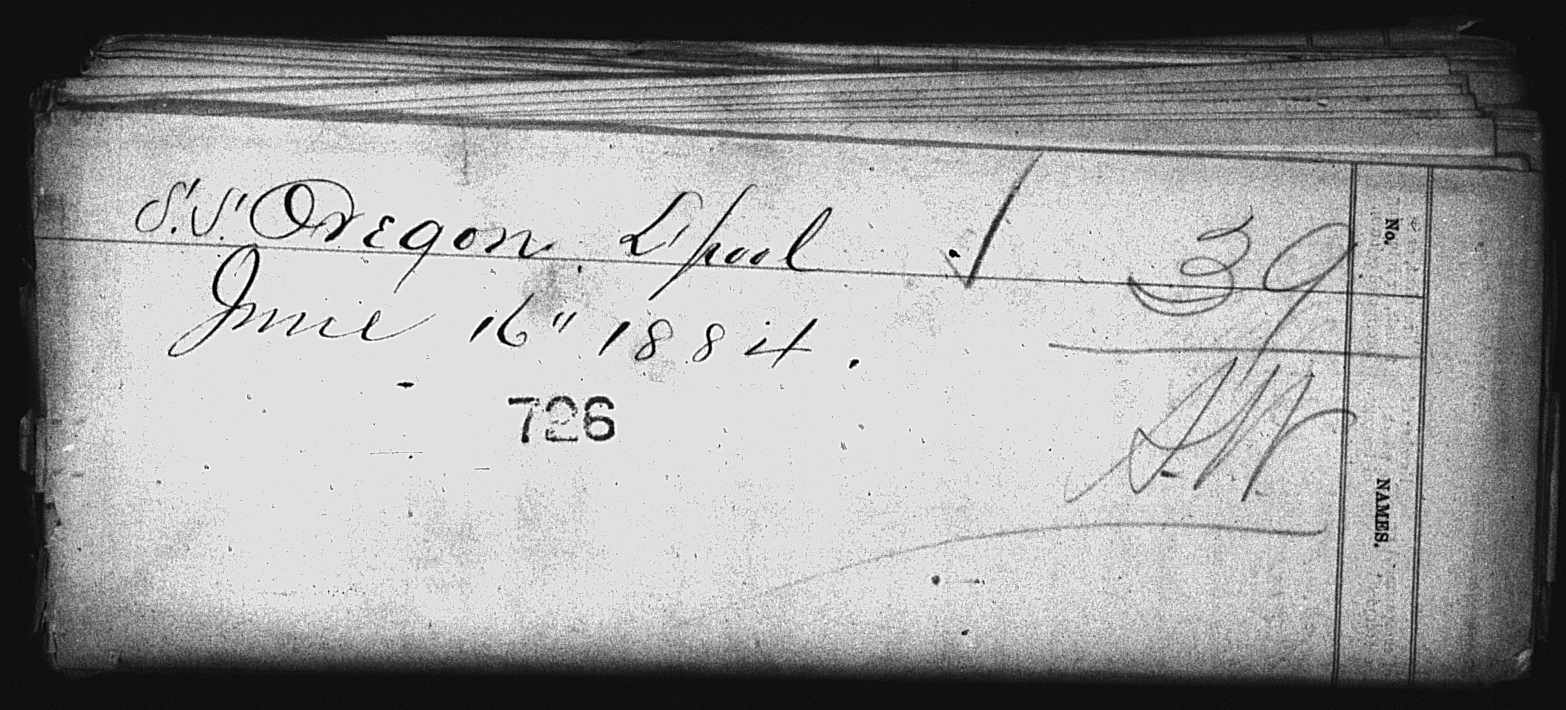 S.S. Oregon. L'pool
39
June 16" 1884.
726
No.
NAMES.